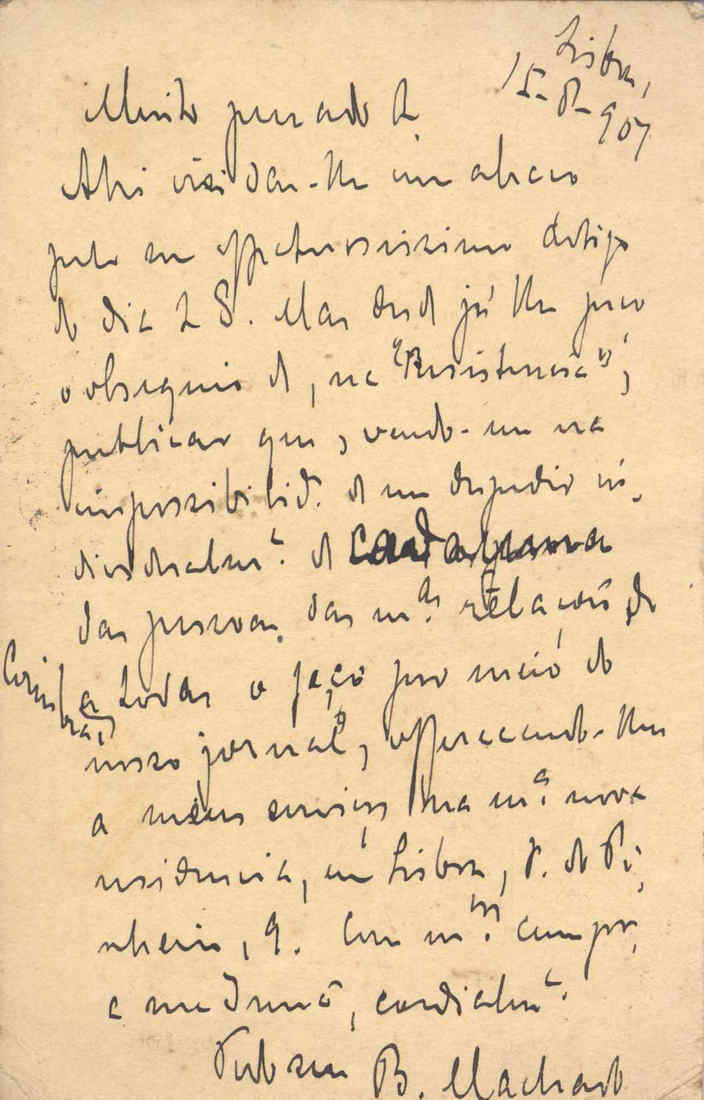 Lisboa,
15-8-907
Muito prezado
Ahi vai dar-lhe um abraço
pelo seu affectuosissimo artigo
do dia 28. Mas desde já lhe peço
o obsequio de, na "Resistencia",
publicar que, vendo-me na
impossibilid.e de me despedir in-
dividualm.e de cada
das pessoas das m.as relações de
Coimbra,
a todas o faço por meio do
nosso jornal, offerecendo-lhes
a meus serviços na m.a nova
residencia, em Lisboa, r. do Pi-
nheiro, 9. Com m.tos cumpr.
cordialm.e
B. Machado